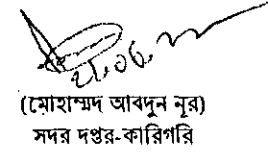 ২১.০৬.
(মোহাম্মদ আবদুন নূর)
সদর দপ্তর-কারিগরি